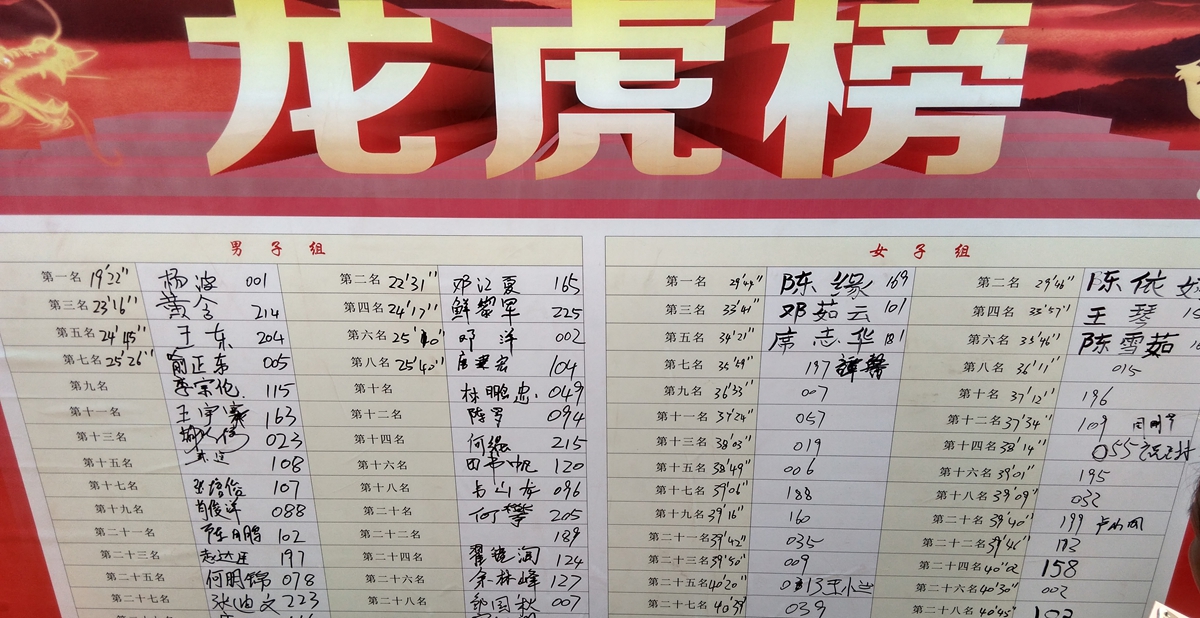 龙虎榜
男子组
女子组
第一名 19'22" 杨波 001 第二名 22'31" 邓江夏 165
第三名 23'16" 黄含 214 第四名 24'17" 鲜黎军 225
第五名 24'45" 王东 204 第六名 25' 邓洋 002
第七名 25'26" 俞正东 005 第八名 25'40" 宏 104
第九名 李宗伦 115 第十名 林鹏忠 049
第十一名 王宇豪 163 第十二名 陈罗 094
第十三名 023 第十四名 何缘 215
第十五名 108 第十六名 田书帆 120
第十七名 张培俊 107 第十八名 占山女 096
第十九名 肖俊洋 088 第二十名 何攀 205
第二十一名 102 189
第二十三名 197 第二十四名 翟 124
第二十五名 何明锦 078 第二十六名 余林峰 127
第二十七名 张迪文 223 第二十八名 邹国秋 007
第一名 29'44" 陈缘 169 第二名 29'46" 陈依
第三名 33'41" 邓茹云 101 第四名 33'57" 王琴
第五名 34'21" 席志华 181 第六名 35'46" 陈雪茹
第七名 35'49" 197 谭馨 第八名 36'11" 015
第九名 36'33" 007 第十名 37'12" 196
第十一名 37'24" 057 第十二名 37'34" 109
第十三名 38'03" 019 第十四名 38'14" 055
第十五名 38'49" 006 第十六名 39'01" 195
第十七名 39'06" 188 第十八名 39'09" 032
第十九名 39'16" 160 第二十名 39'40" 199
第二十一名 39'42" 035 第二十二名 39'46" 183
第二十三名 39'50" 009 第二十四名 40'02 158
第二十五名 40'20" 013 王小兰 第二十六名 40'30" 002
第二十七名 40'39" 039 第二十八名 40'45"